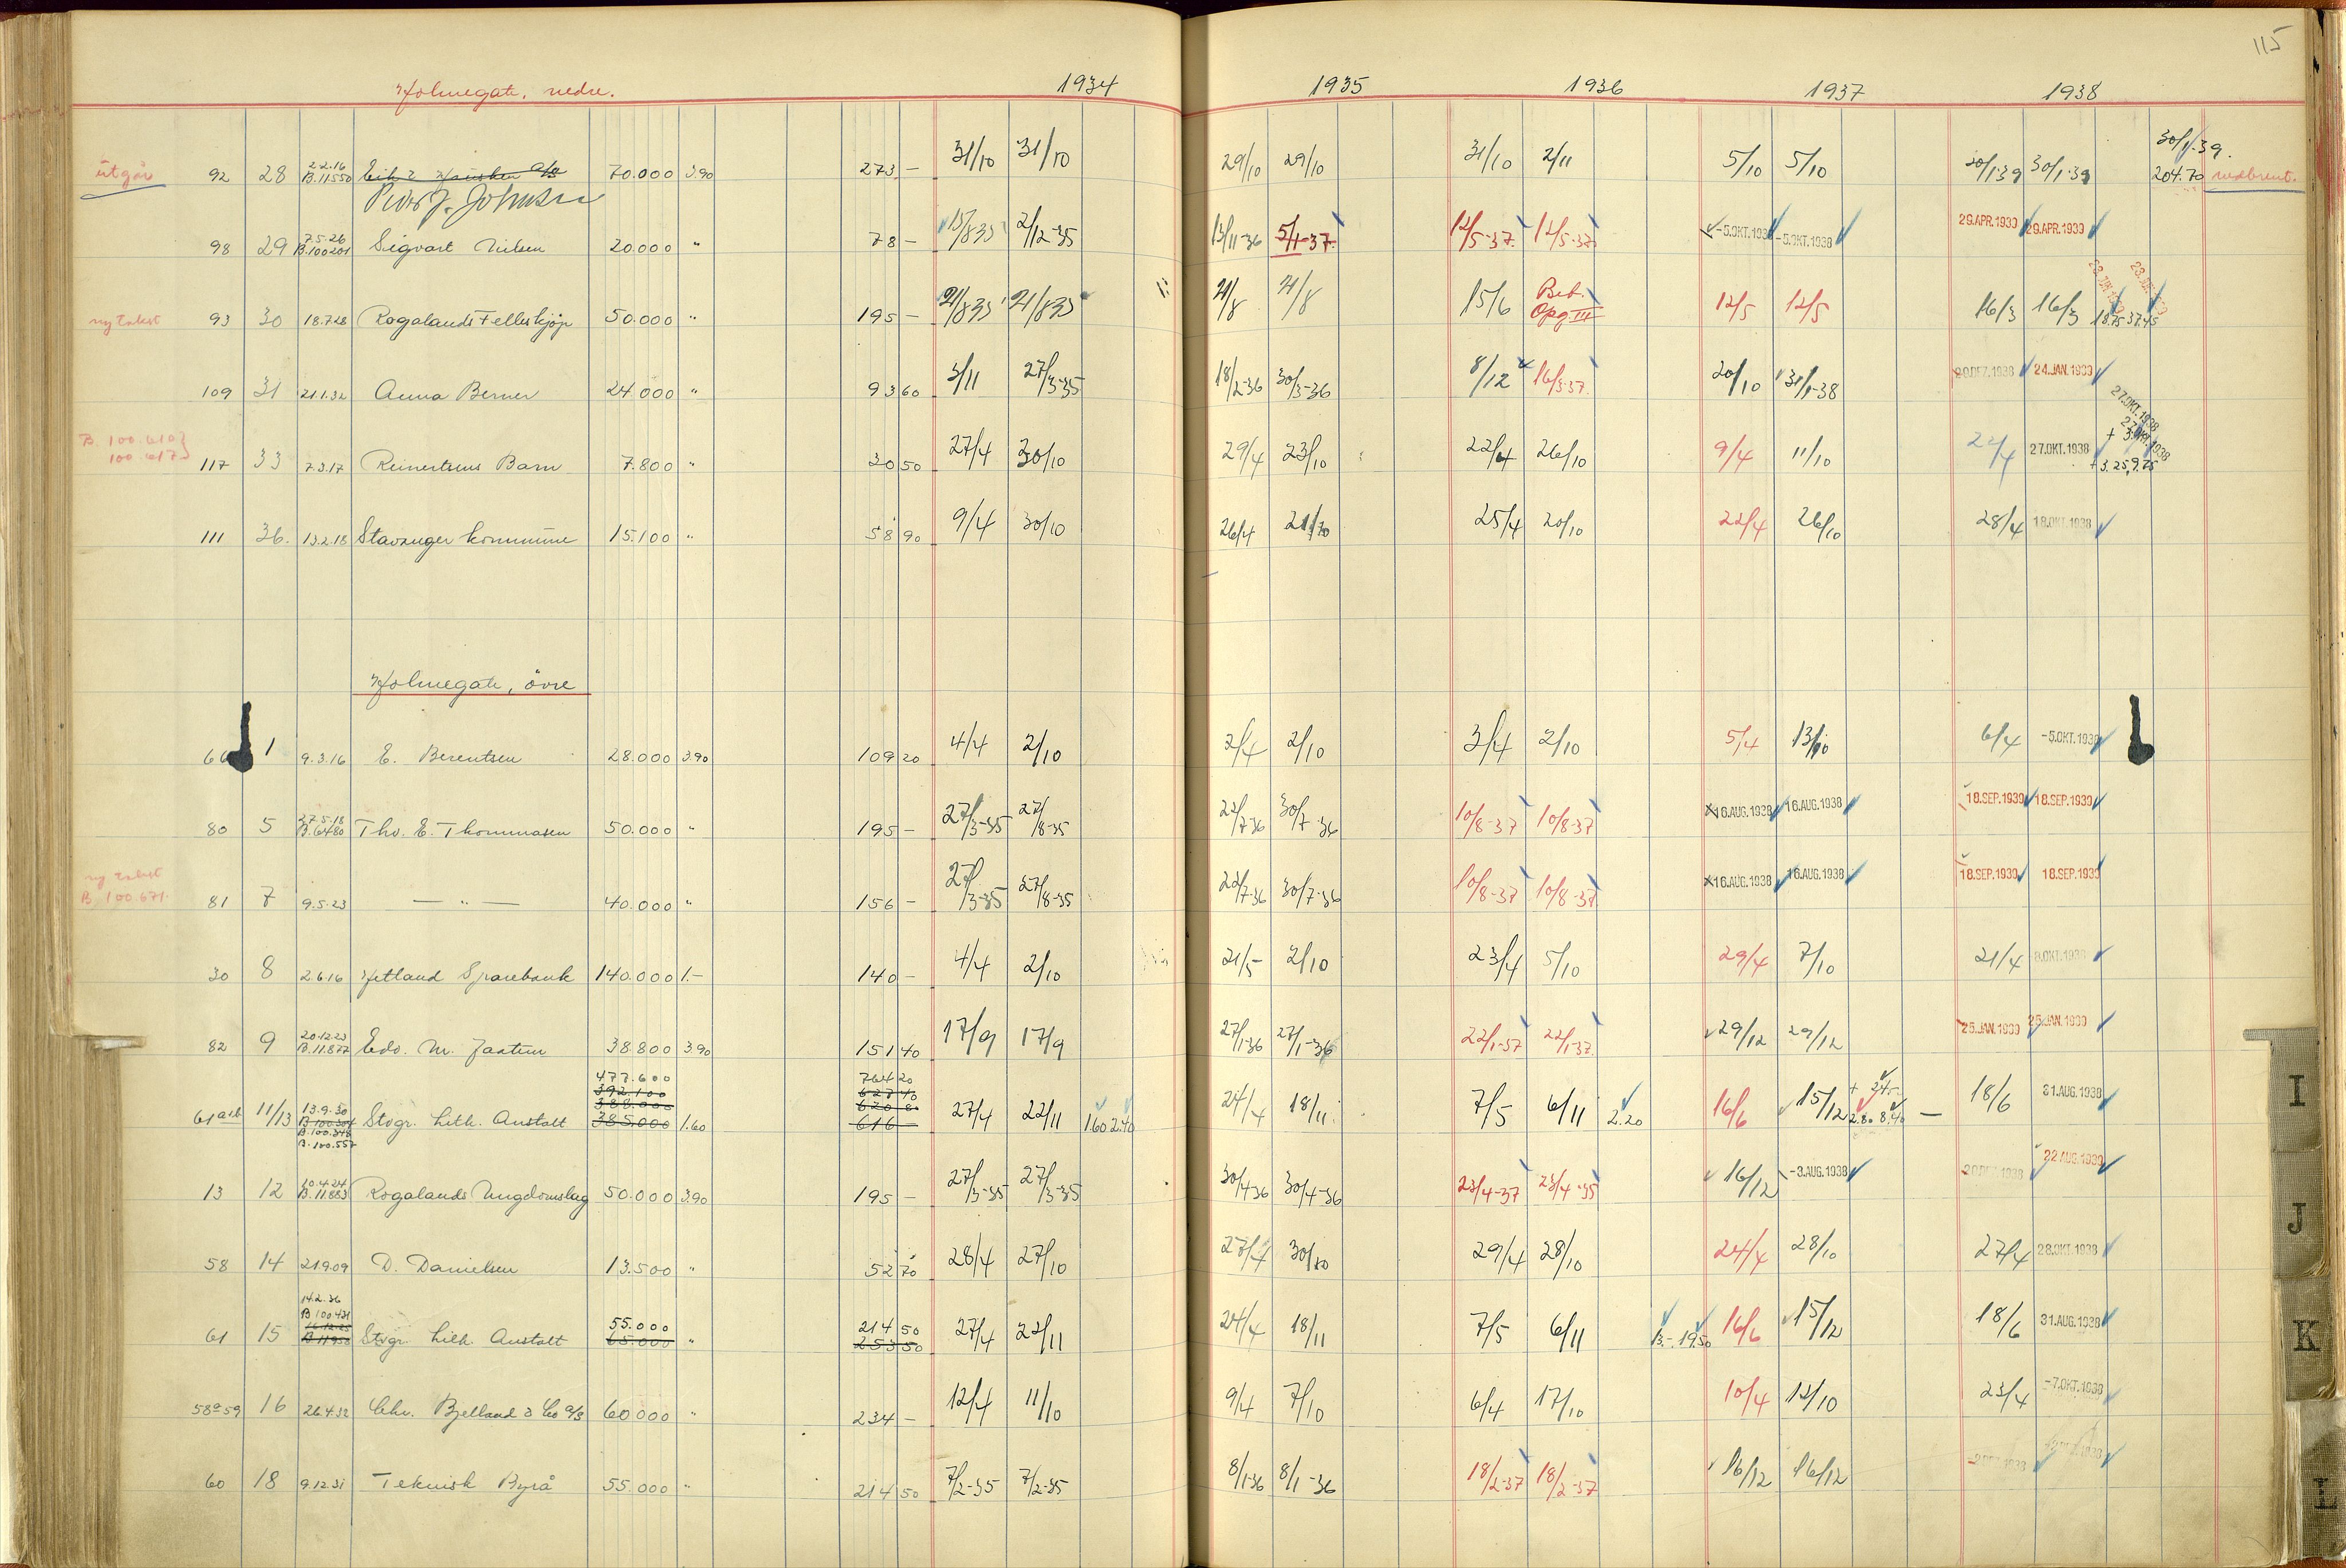 115
Holmegate, nedre. 1934 1935 1936 1937 1938
utgår 92 28 2.2.16 B.11550 Eik & Hausken a/s 70.000 3.90 273 - 31/10 31/10 29/10 29/10 31/10 2/11 5/10 5/10 30/1-39 30/1-39 30/1-39. 204.70 nedbrent.
98 29 7.5.26 B.100201 Sigvart Nielsen 20.000 " 78 - 15/8 35 2/12-35 13/11-36 5/1-37 12/5-37 12/5-37 -5.OKT.1938 -5.OKT.1938 29.APR.1939 29.APR.1939
ny takst 93 30 18.7.28 Rogalands Felleskjøp 50.000 " 195 - 21/8 35 21/8 35 21/8 21/8 15/6 Bet. Opg. III 12/5 12/5 16/3 16/3 18.75 37.45
109 31 21.1.32 Anna Berner 24.000 " 93 60 3/11 27/3-35 18/2-36 30/3-36 8/12 16/3-37 20/10 31/1-38 20.DEZ.1938 24.JAN.1939
B. 100.610 100.617 117 33 7.3.17 Reinertsens Barn 7.800 " 30 50 27/4 30/10 29/4 23/10 22/4 26/10 9/4 11/10 22/4 27.OKT.1938 27.OKT.1938 27.OKT.1938 + 3.25, 9.75
111 36. 13.2.18 Stavanger kommune 15.100 " 58 90 9/4 30/10 26/4 21/10 25/4 20/10 22/4 26/10 28/4 18.OKT.1938
Holmegate, övre
66 1 9.3.16 E. Berentsen 28.000 3.90 109 20 4/4 2/10 2/4 2/10 3/4 2/10 5/4 13/10 6/4 -5.OKT.1938
80 5 27.5.18 B.6480 Thv. E. Thommasen 50.000 " 195 - 27/3-35 27/8-35 22/7-36 30/7-36 10/8-37 10/8-37 16.AUG.1938 16.AUG.1938 18.SEP.1939 18.SEP.1939
ny takst B. 100.671. 81 7 9.5.23 — " — 40.000 " 156 - 27/3-35 27/8-35 22/7-36 30/7-36 10/8-37 10/8-37 16.AUG.1938 16.AUG.1938 18.SEP.1939 18.SEP.1939
30 8 2.6.16 Hetland Sparebank 140.000 1.- 140 - 4/4 2/10 21/5 2/10 23/4 5/10 29/4 7/10 21/4 OKT.1938
82 9 20.12.23 B.11.877 Edv. M. Jaatun 38.800 3.90 151 40 17/9 17/9 27/1-36 27/1-36 22/1-37 22/1-37 29/12 29/12 25.JAN.1939 25.JAN.1939
61 a&b 11/13 13.9.30 B.100.304 B.100.348 B.100.557 Stvgr. Lith. Anstalt 477.600 392.100 388.000 385.000 1.60 764 20 627 40 620 80 616 - 27/4 22/11 1.60 2.40 24/4 18/11 7/5 6/11 2.20 16/6 15/12 + 24.- 2.80 8.40 — 18/6 31.AUG.1938
13 12 10.4.24 B.11.883 Rogalands Ungdomslag 50.000 3.90 195 - 27/3-35 27/3-35 30/4-36 30/4-36 23/4-37 23/4-35 16/12 -3.AUG.1938 22.AUG.1939
58 14 21.9.09 D. Danielsen 13.500 " 52 70 28/4 27/10 27/4 30/10 29/4 28/10 24/4 28/10 27/4 28.OKT.1938
61 15 14.2.36 B 100431 16.12.25 B 11950 Stvgr. Lith. Anstalt 55.000 65.000 " 214 50 253 50 27/4 22/11 24/4 18/11 7/5 6/11 13.- 19.50 16/6 15/12 18/6 31.AUG.1938
58 a 59 16 26.4.32 Chr. Bjelland & Co a/s 60.000 " 234 - 12/4 11/10 9/4 7/10 6/4 17/10 10/4 12/10 23/4 -7.OKT.1938
60 18 9.12.31 Teknisk Byrå 55.000 " 214 50 7/2-35 7/2-35 8/1-36 8/1-36 18/2-37 18/2-37 16/12 16/12
I
J
K
L